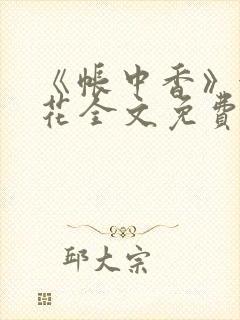 《帐中香》
花全文免費
邱大宗